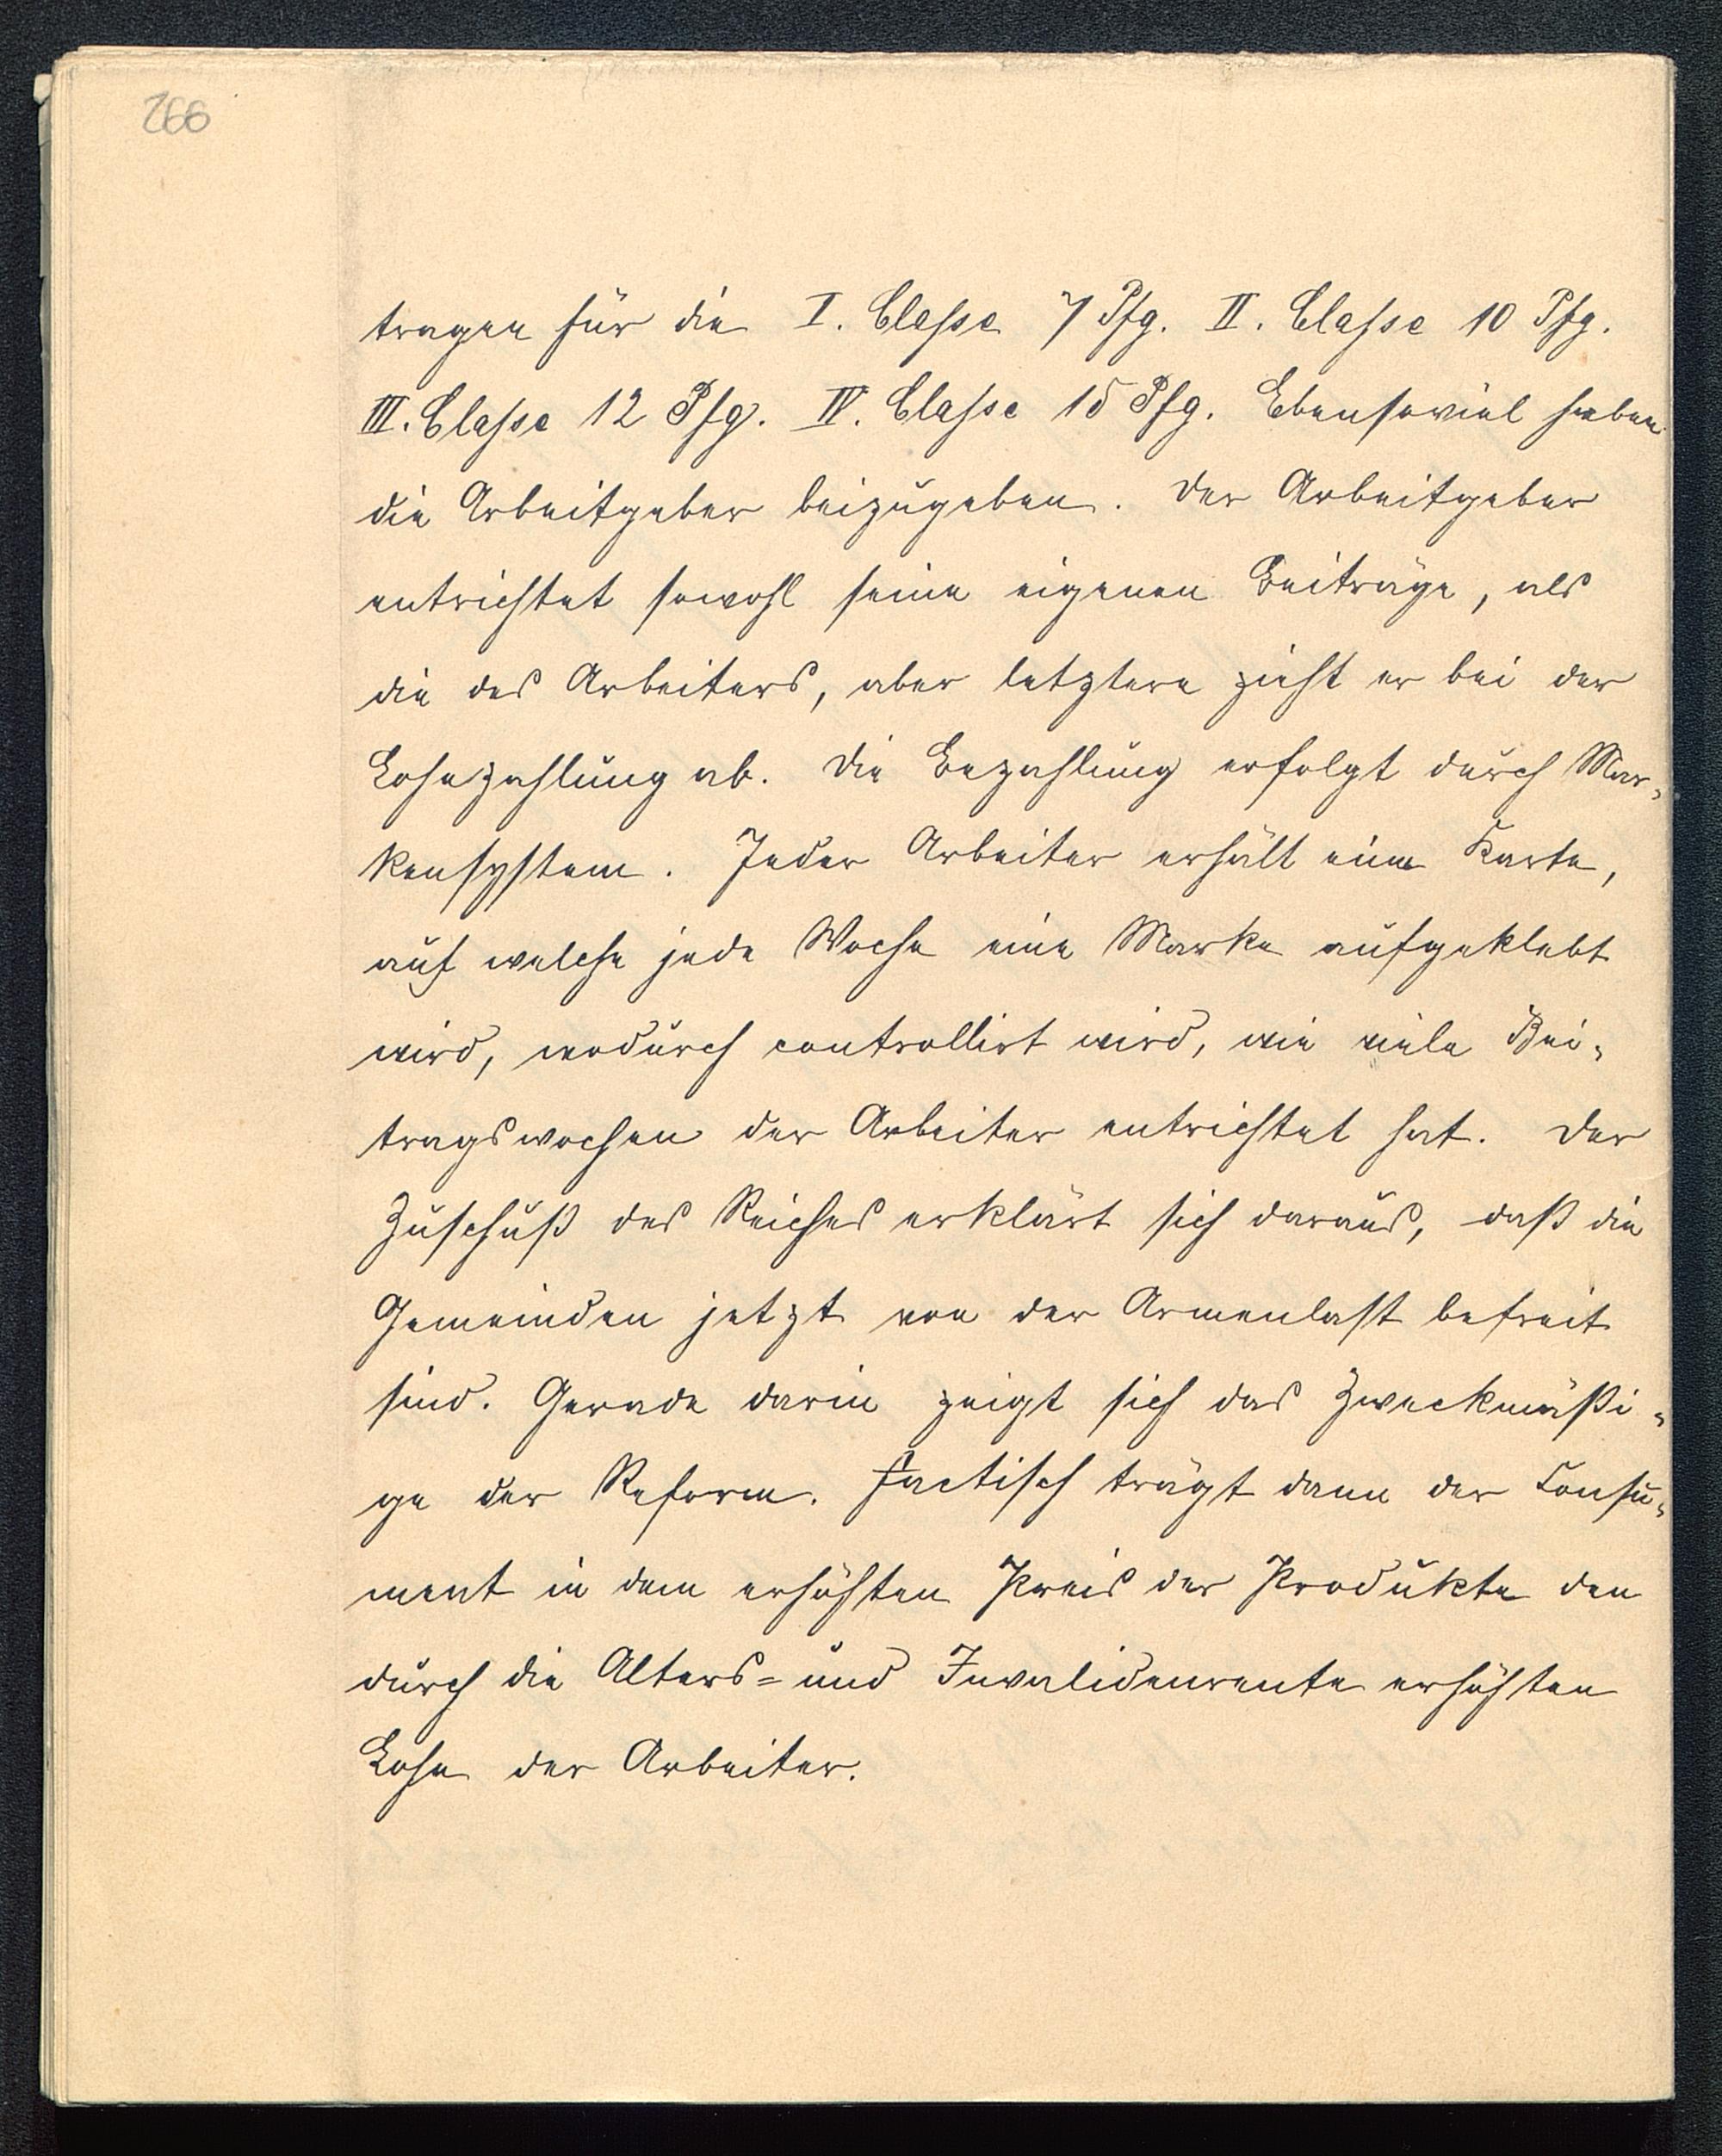 266
tragen für die I. Classe 7 Pfg. II. Classe 10 Pfg.
III. Classe 12 Pfg. IV. Classe 15 Pfg. Ebensoviel haben
die Arbeitgeber beizugeben. Der Arbeitgeber
entrichtet sowohl seine eigenen Beiträge, als
die des Arbeiters, aber letztere zieht er bei der
Lohnzahlung ab. Die Bezahlung erfolgt durch Mar-
kensystem. Jeder Arbeiter erhält eine Karte,
auf welche jede Woche eine Marke aufgeklebt
wird, wodurch controllirt wird, wie viele Bei-
tragswochen der Arbeiter entrichtet hat. Der
Zuschuß des Reiches erklärt sich daraus, daß die
Gemeinden jetzt von der Armenlast befreit
sind. Gerade darin zeigt sich das Zweckmäßi-
ge der Reform. Factisch trägt dann der Consu-
ment in dem erhöhten Preis der Produkte den
durch die Alters- und Invalidenrente erhöhten
Lohn der Arbeiter.